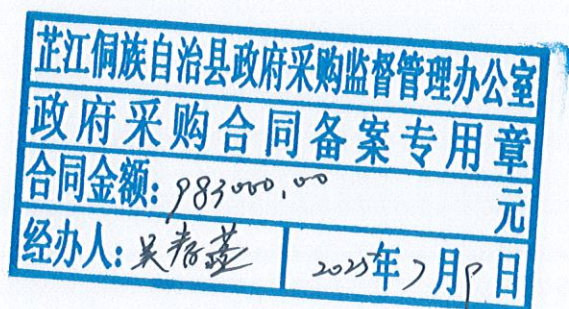 芷江侗族自治县政府采购监督管理办公室
政府采购合同备案专用章
合同金额: 983000.00 元
经办人: 吴 2025年7月9日